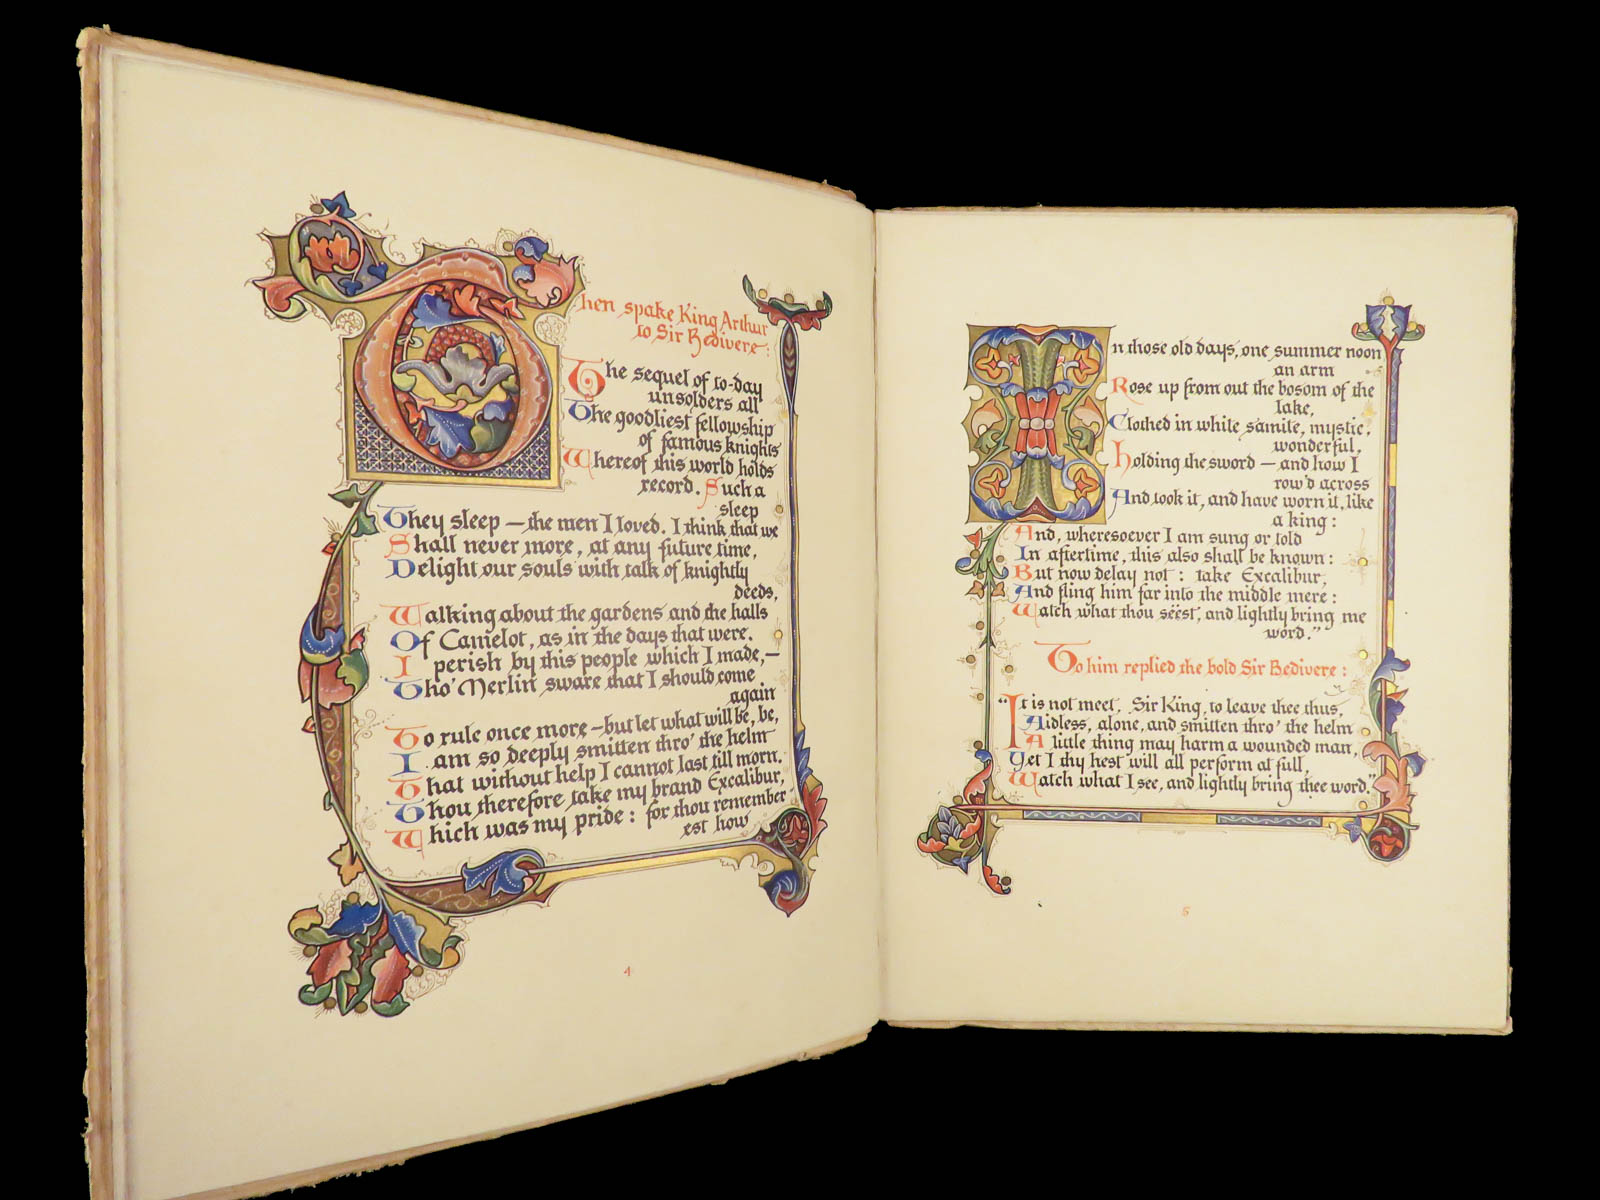 Then spake King Arthur
to Sir Bedivere:
The sequel of to-day
unsolders all
The goodliest fellowship
of famous knights
Whereof this world holds
record. Such a
sleep
They sleep — the men I loved. I think that we
Shall never more, at any future time,
Delight our souls with talk of knightly
deeds,
Walking about the gardens and the halls
Of Camelot, as in the days that were.
I perish by this people which I made,—
Tho' Merlin sware that I should come
again
To rule once more – but let what will be, be,
I am so deeply smitten thro' the helm
That without help I cannot last till morn.
Thou therefore take my brand Excalibur,
Which was my pride: for thou remember
est how
4
In those old days, one summer noon
an arm
Rose up from out the bosom of the
lake,
Clothed in white samite, mystic,
wonderful,
Holding the sword — and how I
row'd across
And took it, and have worn it, like
a king:
And, wheresoever I am sung or told
In aftertime, this also shall be known:
But now delay not: take Excalibur,
And fling him far into the middle mere:
Watch what thou sëest, and lightly bring me
word."
To him replied the bold Sir Bedivere:
"It is not meet, Sir King, to leave thee thus,
Aidless, alone, and smitten thro' the helm
A little thing may harm a wounded man,
Yet I thy hest will all perform at full,
Watch what I see, and lightly bring thee word."
5